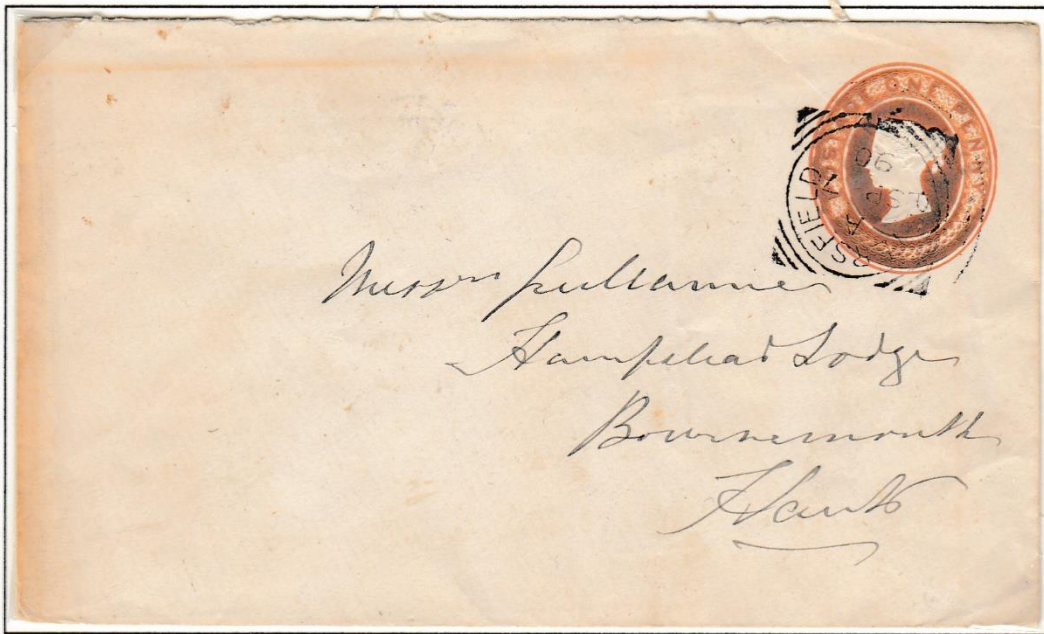 POSTAGE ONE PENNY
SFIELD
90
Messrs
Hampstead Lodge
Bournemouth
Hants